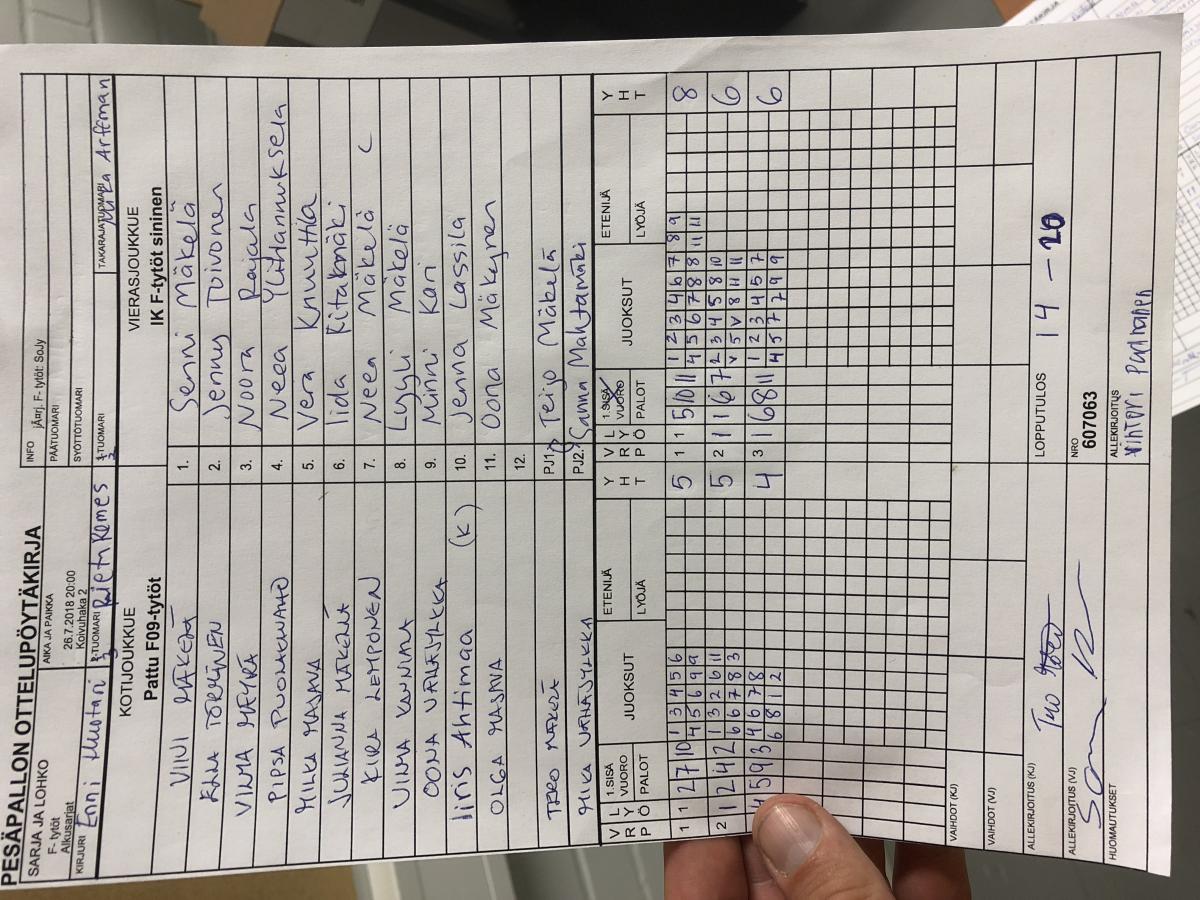 PESÄPALLON OTTELUPÖYTÄKIRJA
SARJA JA LOHKO
F- tytöt
Alkusarjat
AIKA JA PAIKKA
26.7.2018 20:00
Koivuhaka 2
INFO jÄ¤rj. F- tytöt: SoJy
PÄÄTUOMARI
SYÖTTÖTUOMARI
KIRJURI Enni Mustari
2-TUOMARI
3-TUOMARI
TAKARAJATUOMARI
KOTIJOUKKUE
Pattu F09-tytöt
VIERASJOUKKUE
IK F-tytöt sininen
VIIVI MÄKELÄ 1. Senni Mäkelä
TÖRMÄNEN 2. Jenny Toivonen
VILMA MÄYRÄ 3. Noora Rajala
PIPSA 4. Neea Ylihannuksela
MILKA MAJAVA 5. Vera Knuuttila
JULIANNA MÄKELÄ 6. Iida Kitakmäki
KIRA LEMPONEN 7. Neea Mäkelä C
VILMA 8. Lyyli Mäkelä
OONA VÄHÄSYLKKA 9. Minni Kari
Iiris Ahtimaa (K) 10. Jenna Lassila
OLGA MAJAVA 11. Oona Mäkynen
12.
TERO MÄKELÄ PJ1. Teijo Mäkelä
MIKA VÄHÄSYLKKA PJ2. Sanna Mahtamäki
V R P L Y Ö 1.SISÄ VUORO PALOT JUOKSUT ETENIJÄ LYÖJÄ Y H T V R P L Y Ö 1.SISÄ VUORO PALOT JUOKSUT ETENIJÄ LYÖJÄ Y H T
1 1 2 7 10 1 3 4 5 6 5 1 1 5 10 11 1 2 3 4 6 7 8 9 8
4 5 6 9 9 4 5 6 7 8 8 11 11
2 1 2 4 2 1 3 2 6 11 5 2 1 1 6 7 2 3 4 5 8 10 6
6 6 7 8 3 v 5 v 8 11 11
4 5 9 3 4 6 7 8 4 3 1 6 8 11 1 2 3 4 5 7 6
6 8 1 2 4 5 7 7 9 9
VAIHDOT (KJ)
VAIHDOT (VJ)
ALLEKIRJOITUS (KJ)
LOPPUTULOS 14 - 20
ALLEKIRJOITUS (VJ)
NRO
607063
HUOMAUTUKSET
ALLEKIRJOITUS